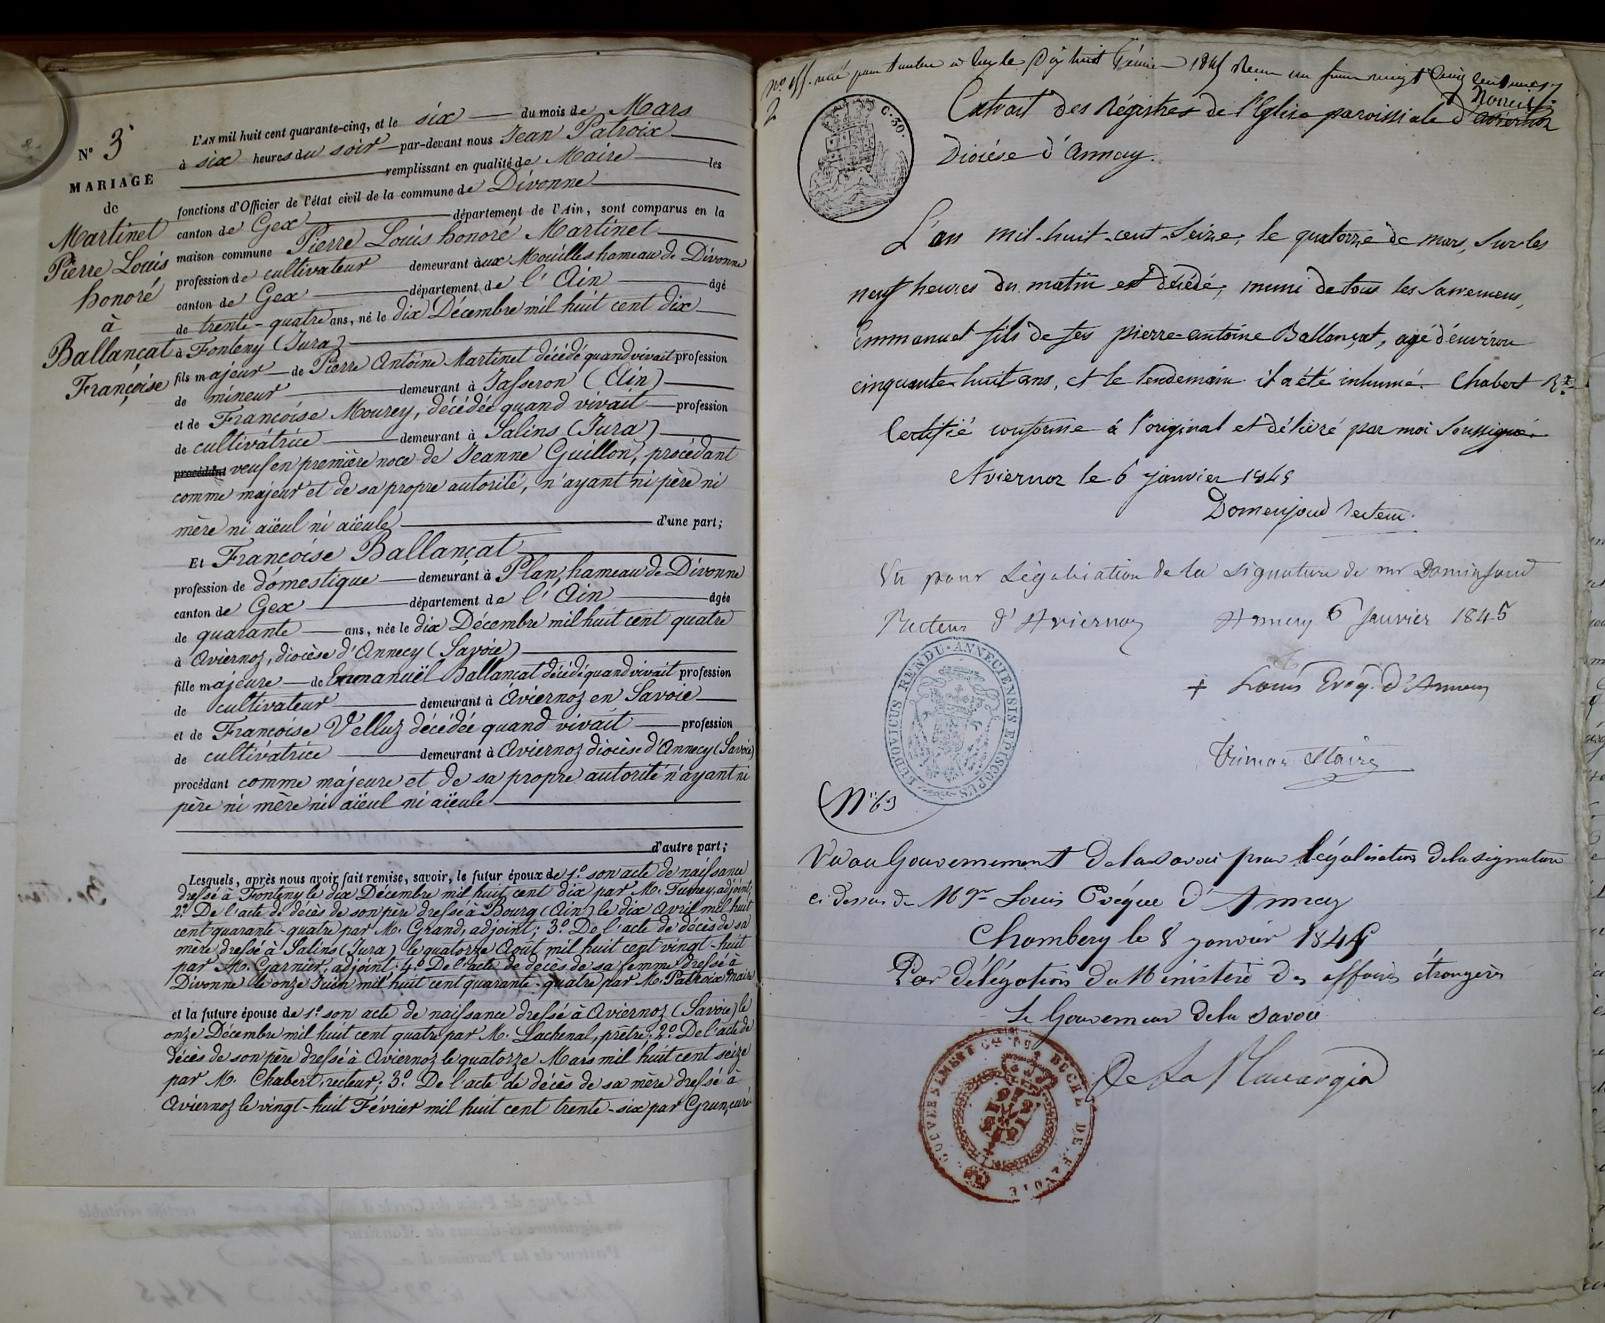 N° 3
MARIAGE
de
Martinet
Pierre Louis
honoré
à
Ballançat
Françoise
L'AN mil huit cent quarante-cinq, et le six du mois de Mars
à six heures du soir par-devant nous Jean Patroix
remplissant en qualité de Maire les
fonctions d'Officier de l'état civil de la commune de Divonne
canton de Gex département de l'Ain, sont comparus en la
maison commune Pierre Louis honoré Martinet
profession de cultivateur demeurant aux Mouilles hameau de Divonne
canton de Gex département de l'Ain âgé
de trente-quatre ans, né le dix Décembre mil huit cent dix
à Fonteny (Jura)
fils majeur de Pierre Antoine Martinet décédé quand vivait profession
de mineur demeurant à Jasseron (Ain)
et de Françoise Mourey, décédée quand vivait profession
de cultivatrice demeurant à Salins (Jura)
procédant veuf en première noce de Jeanne Guillon, procédant
comme majeur et de sa propre autorité, n'ayant ni père ni
mère ni aïeul ni aïeule d'une part;
Et Françoise Ballançat
profession de domestique demeurant à Plan, hameau de Divonne
canton de Gex département de l'Ain âgée
de quarante ans, née le dix Décembre mil huit cent quatre
à Aviernoz, diocèse d'Annecy (Savoie)
fille majeure de Emmanuël Ballancat décédé quand vivait profession
de cultivateur demeurant à Aviernoz en Savoie
et de Françoise Velluz décédée quand vivait profession
de cultivatrice demeurant à Aviernoz diocèse d'Annecy (Savoie)
procédant comme majeure et de sa propre autorité n'ayant ni
père ni mère ni aïeul ni aïeule
d'autre part;
Lesquels, après nous avoir fait remise, savoir, le futur époux de 1° son acte de naissance
dressé à Fonteny le dix Décembre mil huit cent dix par M. adjoint;
2° De l'acte de décès de son père dressé à Bourg (Ain) le dix Avril mil huit
cent quarante-quatre par M. Grand, adjoint; 3° De l'acte de décès de sa
mère dressé à Salins (Jura) le quatorze Août mil huit cent vingt-huit
par M. Garnier, adjoint; 4° De l'acte de décès de sa femme dressé à
Divonne le onze Juin mil huit cent quarante-quatre par M. Patroix Maire
et la future épouse de 1° son acte de naissance dressé à Aviernoz (Savoie) le
onze Décembre mil huit cent quatre par M. Lachenal, prêtre; 2° De l'acte de
décès de son père dressé à Aviernoz le quatorze Mars mil huit cent seize
par M. Chabert recteur; 3° De l'acte de décès de sa mère dressé à
Aviernoz le vingt-huit Février mil huit cent trente-six par Grun, curé
pour timbre à le dix huit février 1845 Reçu un franc vingt
2
C. 50.
Extrait des Régistres de l'Eglise paroissiale d'aviernoz
Diocèse d'Annecy.
L'an mil-huit-cent-seize, le quatorze de mars, sur les
neuf heures du matin est décédé, muni de tous les sacremens,
Emmanuel fils de feu pierre-antoine Ballançat, agé d'environ
cinquante huit ans, et le lendemain il a été inhumé. Chabert Rr.
Certifié conforme à l'original et délivré par moi soussigné.
Aviernoz le 6 janvier 1845
Domenjoud recteur.
Vu pour Légalisation de la signature de mr Dominjoud
Recteur d'Aviernoz Annecy 6 Janvier 1845
+ Louis Evêq. d'Annecy
LUDOVICUS RENDU ANNECIENSIS EPISCOPUS
N° 63
Vu au Gouvernement de la Savoie pour légalisation de la signature
ci dessus de Mgr Louis Evéque d'Annecy
Chambery le 8 janvier 1845
Par délégation du Ministère des affaires étrangères
Le Gouverneur de la Savoie
GOUVERNEMENT DU DUCHÉ DE SAVOIE